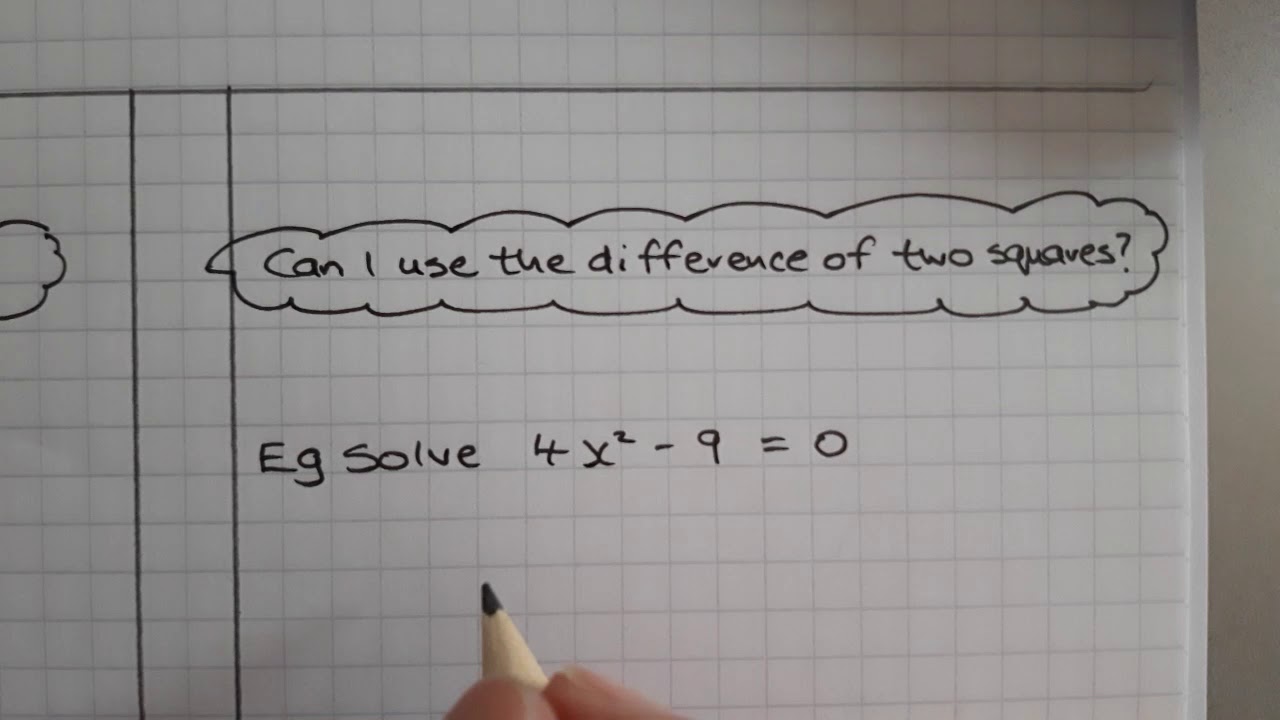 Can I use the difference of two squares?
Eg Solve 4x² - 9 = 0